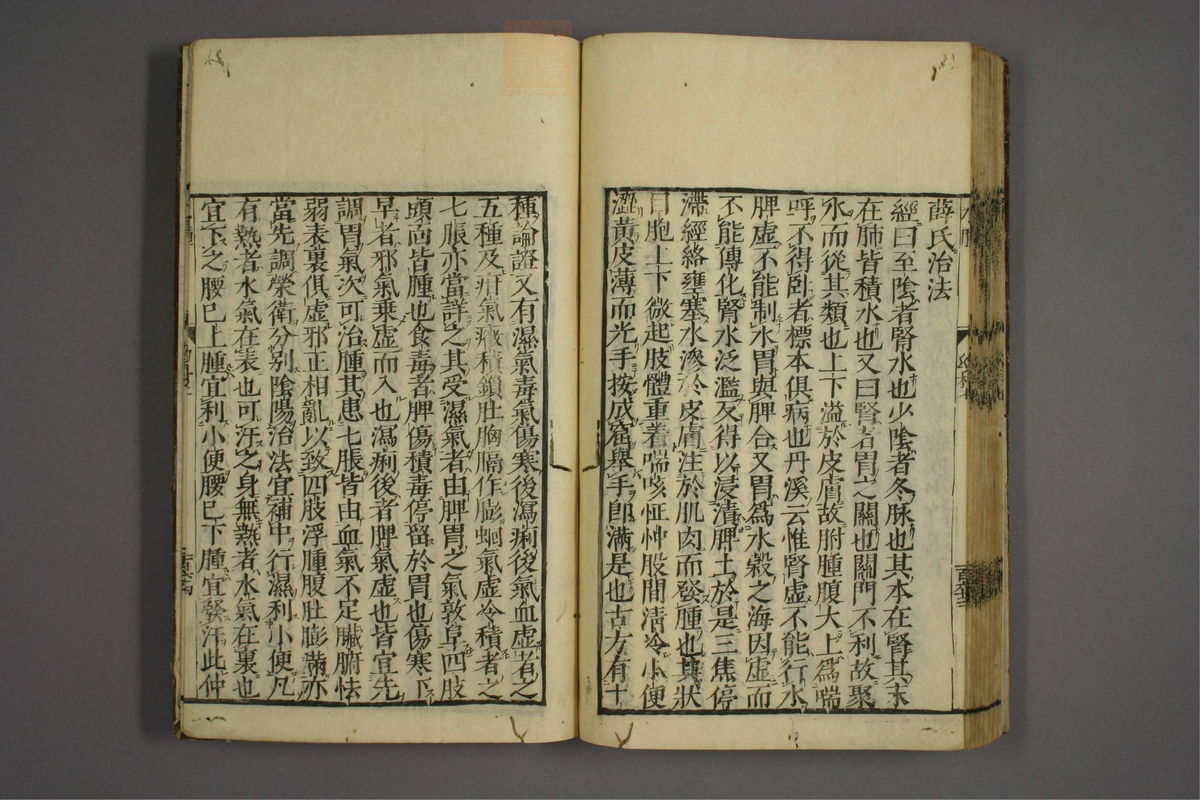 薛氏治法
經曰至陰者腎水也少陰者冬脉也其本在腎其末
在肺皆積水也又曰腎者胃之關也關門不利故聚
水而從其類也上下溢於皮膚故胕腫腹大上爲喘
呼不得臥者標本俱病也丹溪云惟腎虛不能行水
脾虛不能制水胃與脾合又胃爲水穀之海因虛而
不能傳化腎水泛濫反得以浸漬脾土於是三焦停
滯經絡壅塞水滲於皮膚注於肌肉而發腫也其狀
目胞上下微起肢體重着喘咳怔忡股間淸冷小便
澁黃皮薄而光手按成窟舉手卽滿是也古方有十
種論證又有濕氣毒氣傷寒後瀉痢後氣血虛者之
五種及疳氣癥積鎖肚胸膈作膨蛔氣虛冷積者之
七脹亦當詳之其受濕氣者由脾胃之氣敦阜四肢
頭面皆腫也食毒者脾傷積毒停留於胃也傷寒下
早者邪氣乗虛而入也瀉痢後者脾氣虛也皆宜先
調胃氣次可治腫其患七脹皆由血氣不足臟腑怯
弱表裏俱虛邪正相亂以致四肢浮腫腹肚膨滿亦
當先調榮衛分別陰陽治法宜補中行濕利小便凡
有熱者水氣在表也可汗之身無熱者水氣在裏也
宜下之腰已上腫宜利小便腰已下腫宜發汗此仲